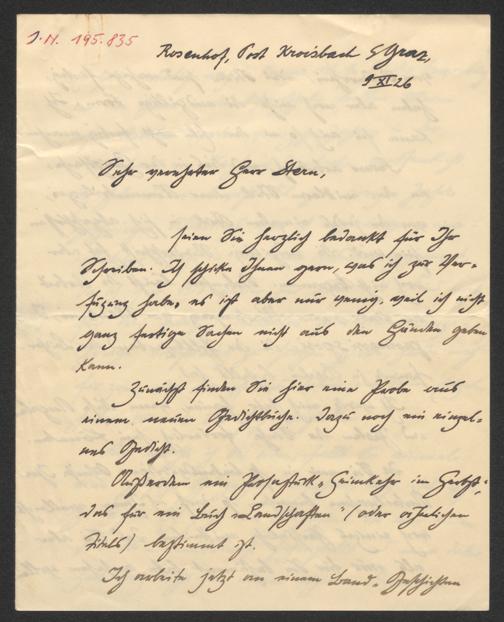 I.N. 195.835
Rosenhof, Post Kroisbach b/Graz,
9 XI 26
Sehr verehrter Herr Stern,
seien Sie herzlich bedankt für Ihr
Schreiben. Ich schicke Ihnen gern, was ich zur Ver-
fügung habe, es ist aber nur wenig, weil ich nicht
ganz fertige Sachen nicht aus den Händen geben
kann.
Zunächst finden Sie hier eine Probe aus
einem neuen Gedichtbuche. Dazu noch ein einzel-
nes Gedicht.
Außerdem ein Prosastück „Heimkehr im Herbst“,
das für ein Buch „Landschaften“ (oder ähnlichen
Titels) bestimmt ist.
Ich arbeite jetzt an einem Band „Geschichten